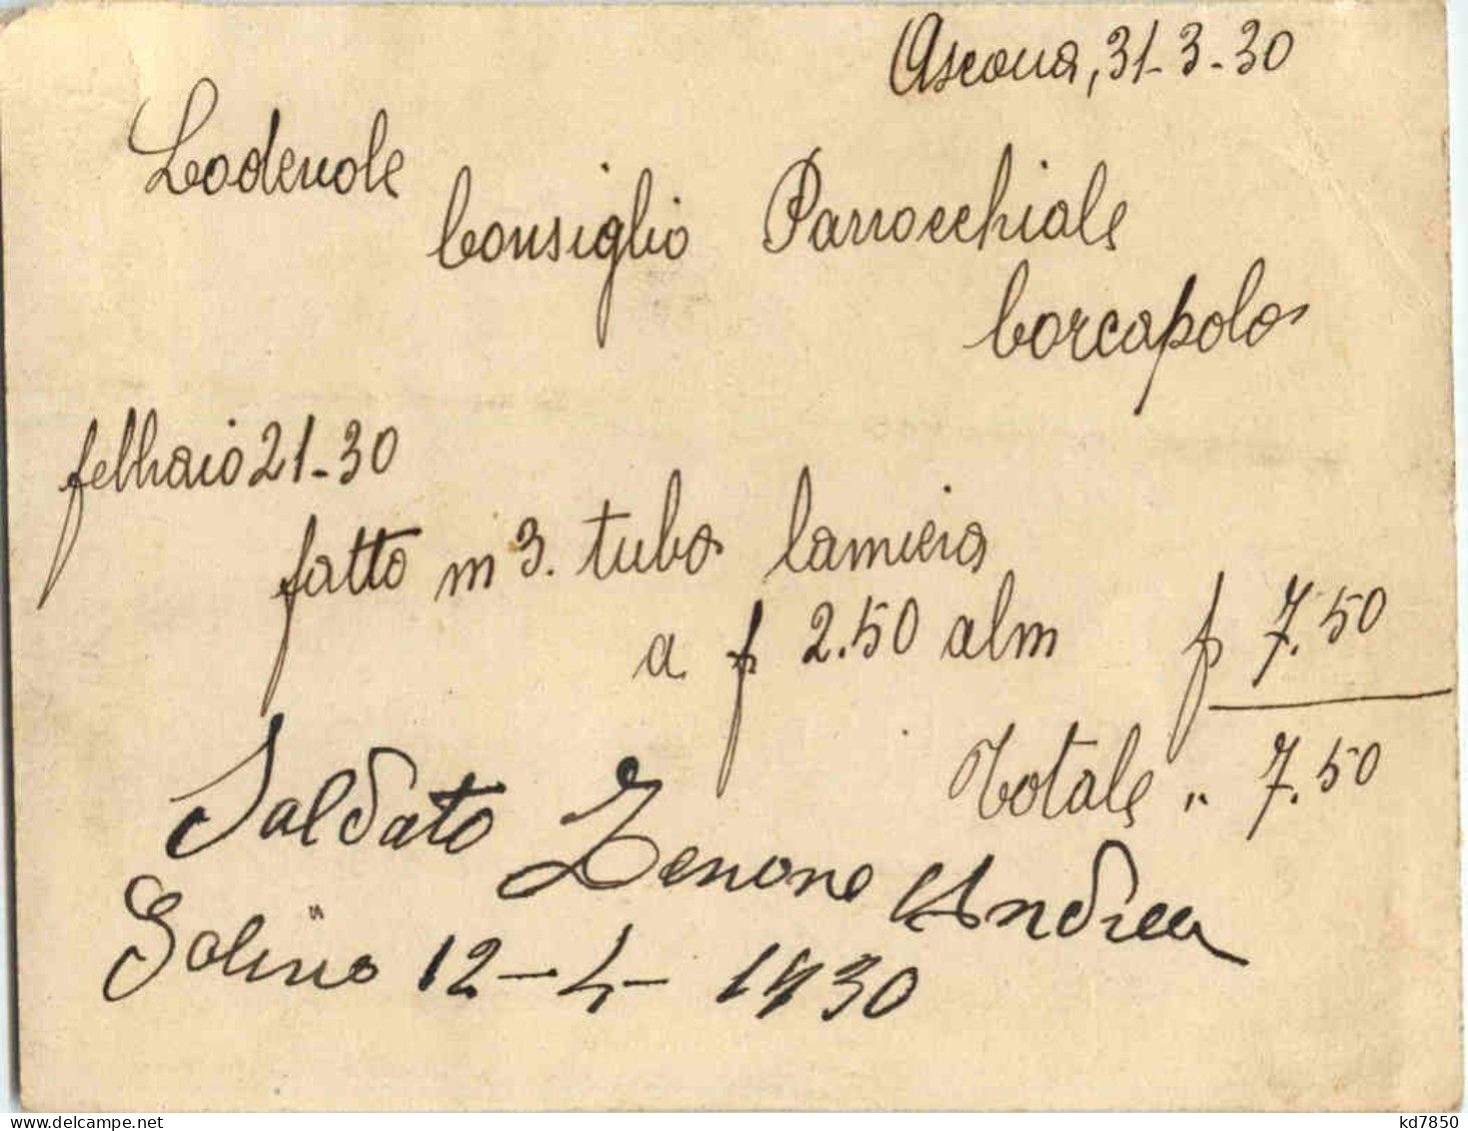 Ascona, 31-3-30
Lodevole
Consiglio Parrocchiale
Corcapolo
febbraio 21-30
fatto m 3. tubo lamiera
a f 2.50 al m f 7.50
Totale " 7.50
Saldato Zenone Andrea
Golino 12-4-1930
kd7850